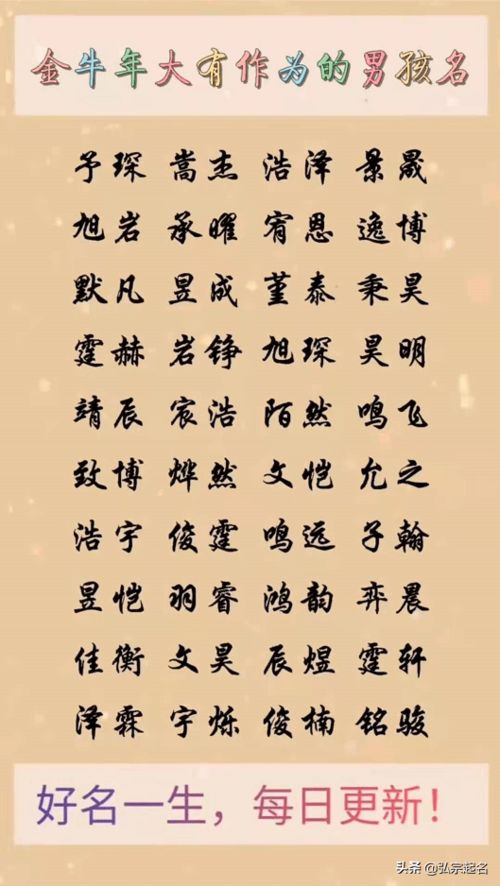 金牛年大有作为的男孩名
予琛 嵩杰 浩泽 景晟
旭岩 承曜 宥恩 逸博
默凡 昱成 堇泰 秉昊
霆赫 岩铮 旭琛 昊明
靖辰 宸浩 陌然 鸣飞
致博 烨然 文恺 允之
浩宇 俊霆 鸣远 子翰
昱恺 羽睿 鸿韵 弈晨
佳衡 文昊 辰煜 霆轩
泽霖 宇烁 俊楠 铭骏
好名一生，每日更新！
头条 @弘宗起名